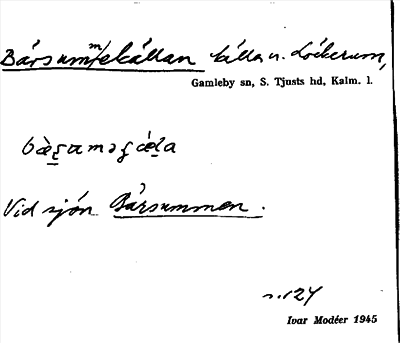 Bårsumm/ekällan källa n. Löckerum,
Gamleby sn, S. Tjusts hd, Kalm. l.
Vid sjön Bårsummen.
s. 124
Ivar Modéer 1945